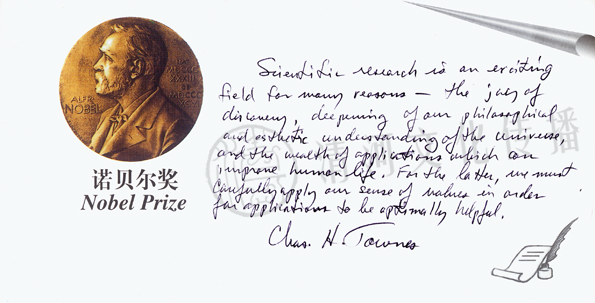 ALFR.
NOBEL
诺贝尔奖
Nobel Prize
Scientific research is an exciting
field for many reasons — the joys of
discovery, deepening of our philosophical
and esthetic understanding of the universe,
and the wealth of applications which can
improve human life. For the latter, we must
carefully apply our sense of values in order
for applications to be optimally helpful.
Chas. H. Townes